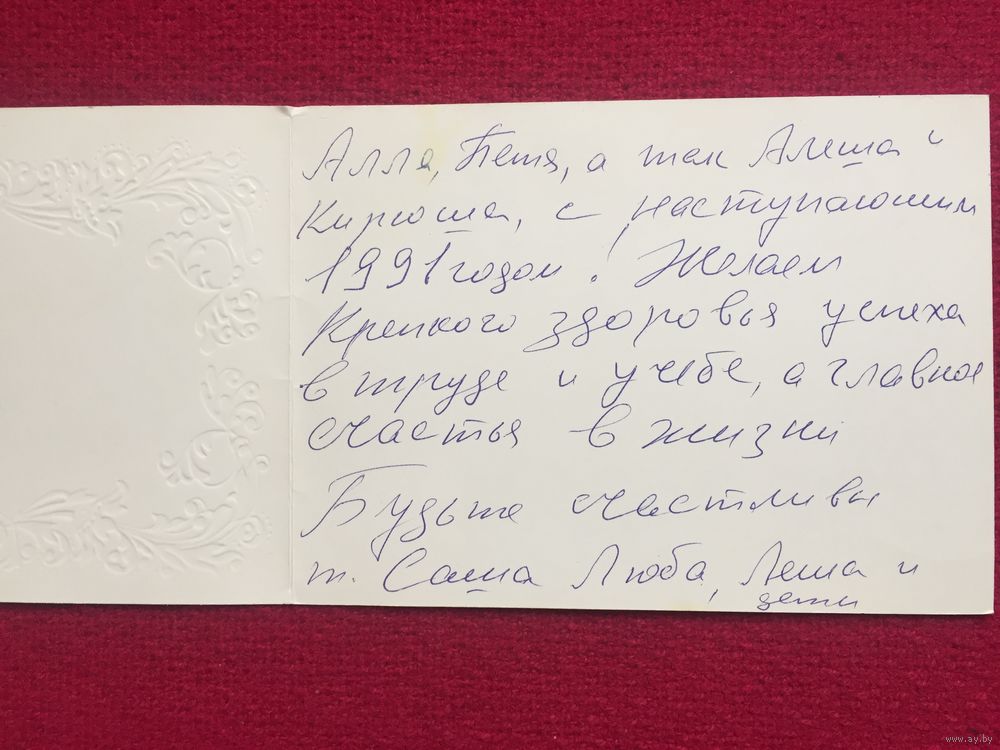 Алла, Петя, а так Алеша и
Кирюша, с наступающим
1991 годом! Желаем
Крепкого здоровья успеха
в труде и учебе, а главное
счастья в жизни
Будьте счастливы
т. Саша Люба, Леша и
дети
www.ay.by